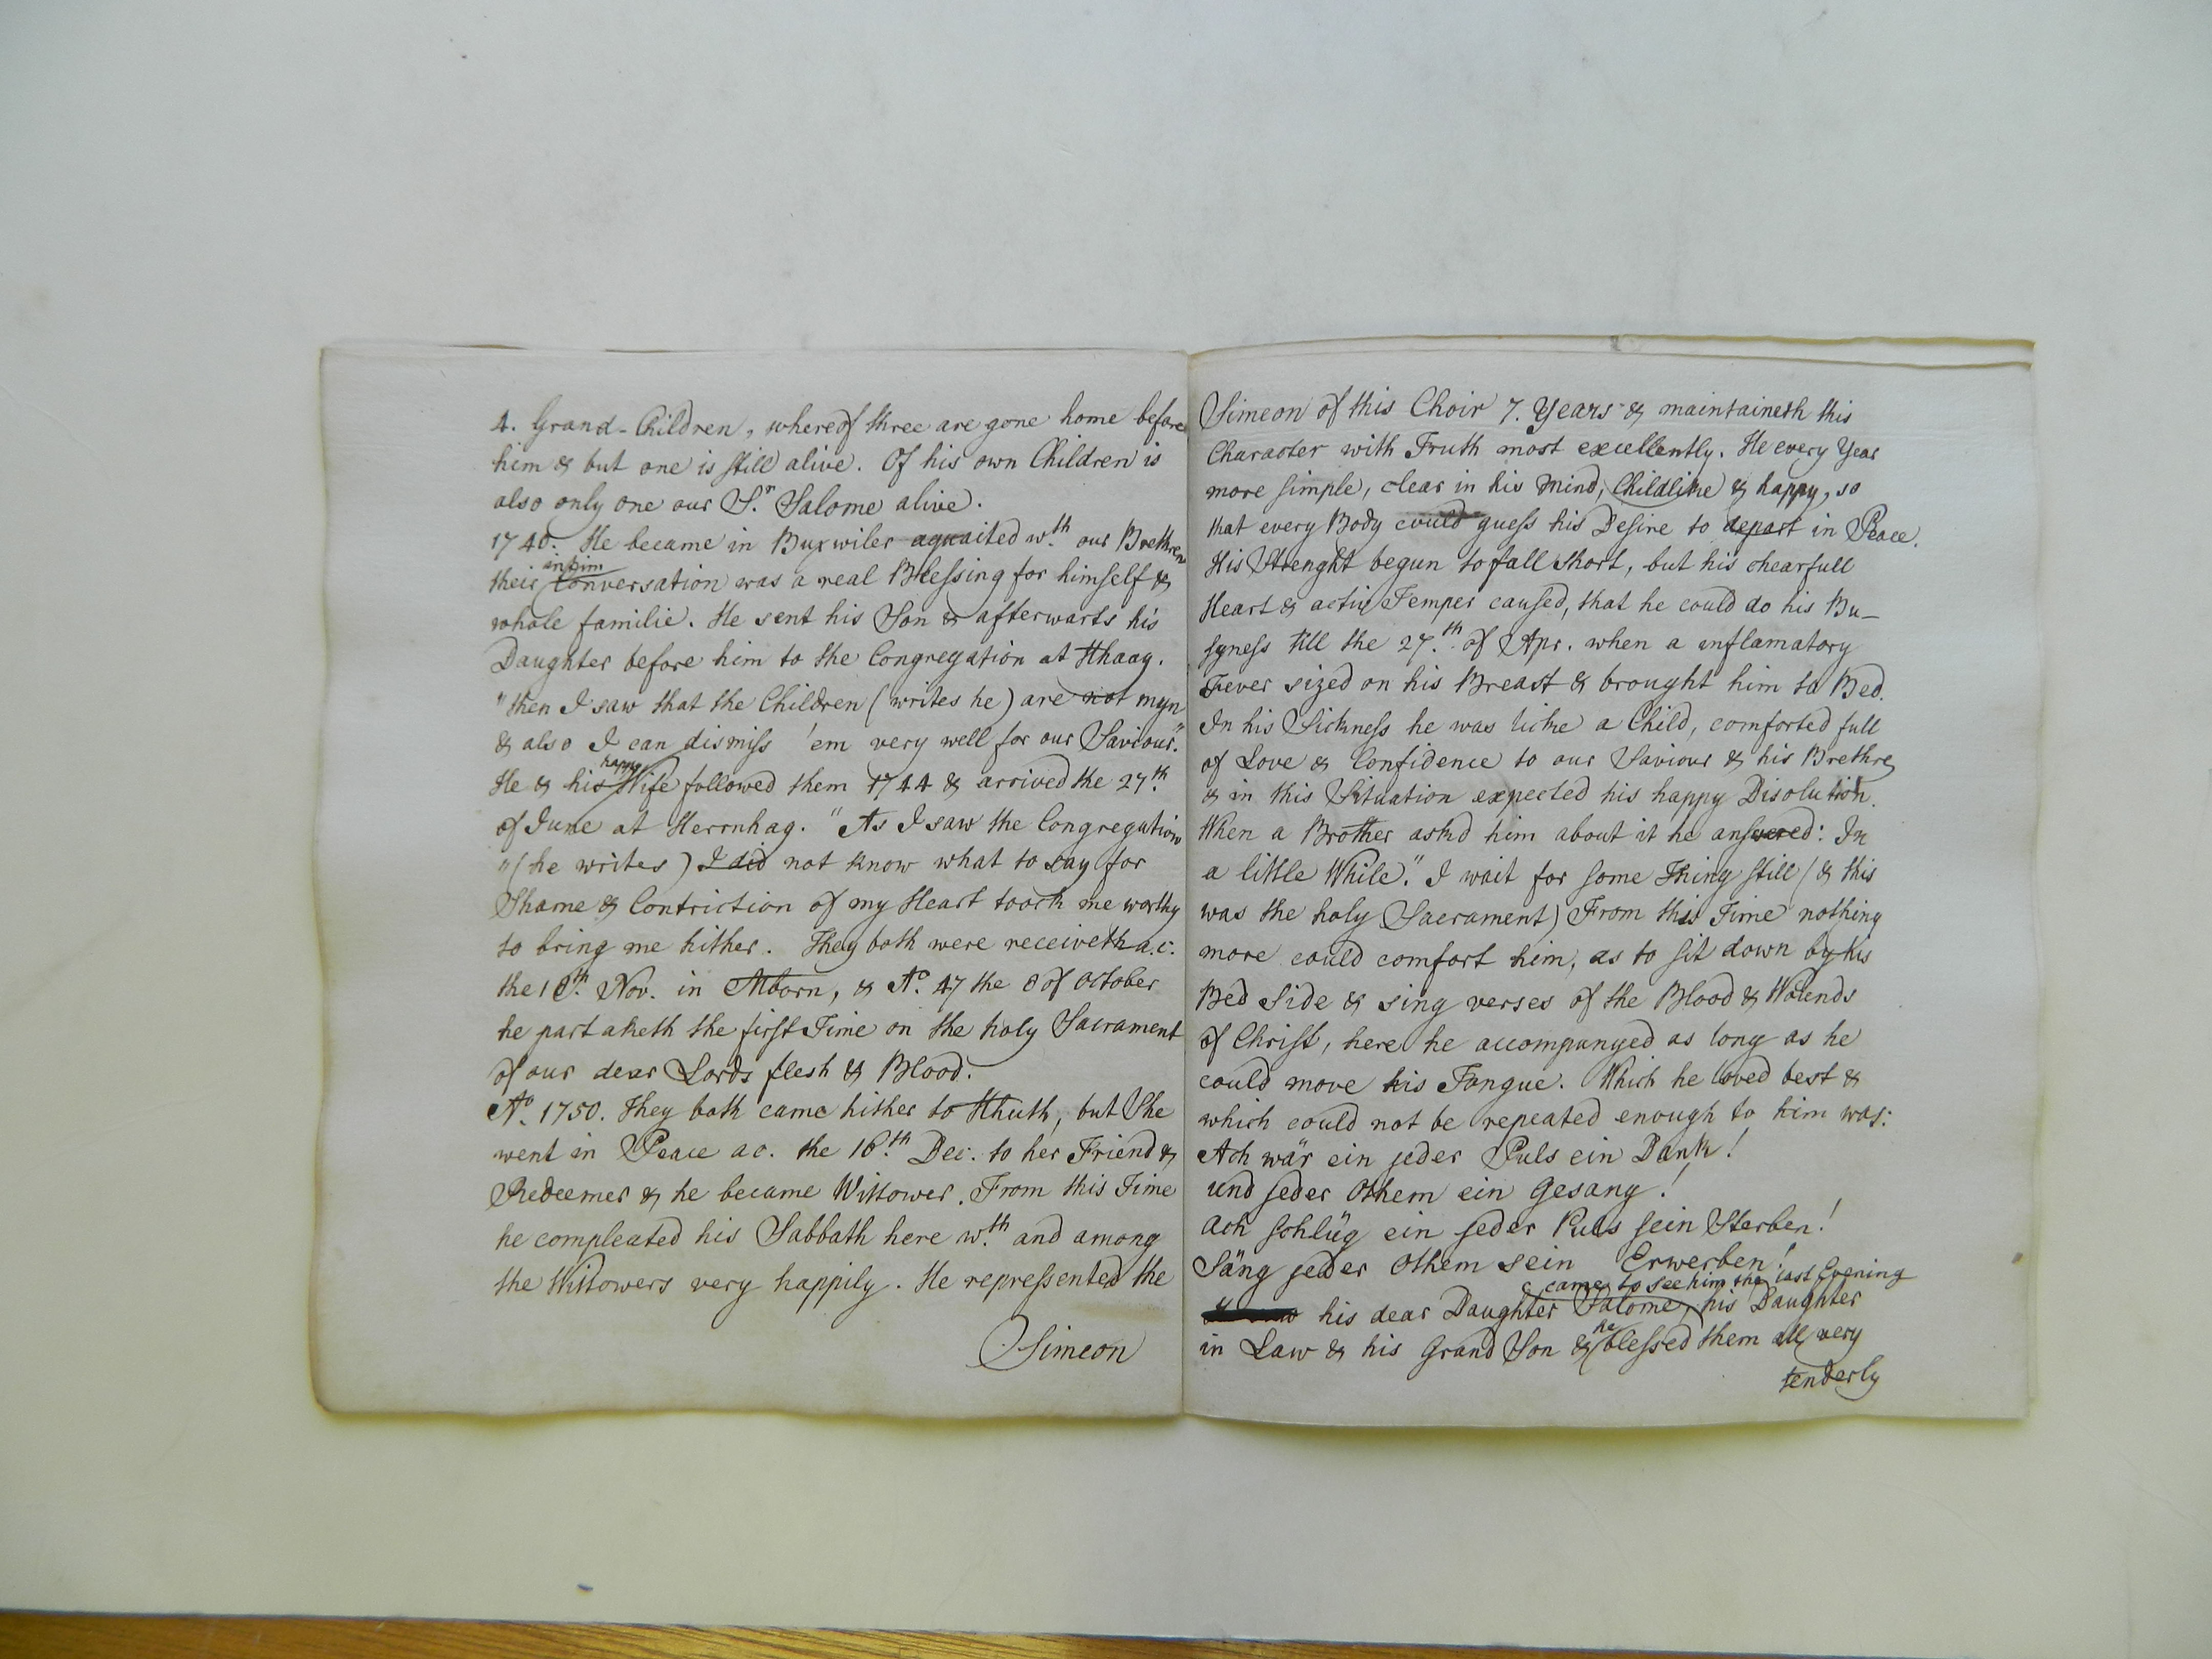 4. Grand-Children, whereof three are gone home before
him & but one is still alive. Of his own Children is
also only one our Sr. Salome alive.
1740. He became in Buxwiler aquaited wth. our Brethren
their in him Conversation was a real Blessing for himself &
whole familie. He sent his Son & afterwarts his
Daughter before him to the Congregation at Hhaag.
"then I saw that the Children (writes he) are not myn
& also I can dismiss 'em very well for our Saviour."
He & his happy Wife followed them 1744 & arrived the 27th.
of June at Herrnhag. "As I saw the Congregation
"(he writes) I did not know what to say for
Shame & Contriction of my Heart toock me worthy
to bring me hither. They both were receiveth a.c.
the Nov. in & Ao. 47 the 8 of October
he partaketh the first Time on the holy Sacrament
of our dear Lords flesh & Blood.
Ao. 1750. They both came hither to Hhuth, but She
went in Peace ao. the 16th. Dec. to her Friend &
Redeemer & he became Wittower. From this Time
he compleated his Sabbath here wth. and among
the Wittowers very happily. He repressented the
Simeon
Simeon of this Choir 7. Years & maintaineth this
Character with Truth most excellently. He every Year
more simple, clear in his Mind, Childlike & happy, so
that every Body could guess his Desire to depart in Peace.
His Strenght begun to fall short, but his chearfull
Heart & activ Temper caused, that he could do his Bu-
syness till the 27th. of Apr. when a inflamatory
Fever sized on his Breast & brought him to Bed.
In his Sickness he was licke a Child, comforted full
of Love & Confidence to our Saviour & his Brethre
& in this Situation expected his happy Disolution.
When a Brother askd him about it he answered: In
a little While." I wait for some Thing still (& this
was the holy Sacrament) From this Time nothing
more could comfort him, as to sit down by his
Bed Side & sing verses of the Blood & Wounds
of Christ, here he accompanyed as long as he
could move his Tongue. Which he loved best &
which could not be repeated enough to him was:
Ach wär ein jeder Puls ein Dank!
und jeder Othem ein Gesang!
ach schlüg ein jeder Puls sein Sterben!
Säng jeder Othem sein Erwerben!
came to see him the last Evening
his dear Daughter Salome, his Daughter
in Law & his Grand Son & he blessed them all very
tenderly